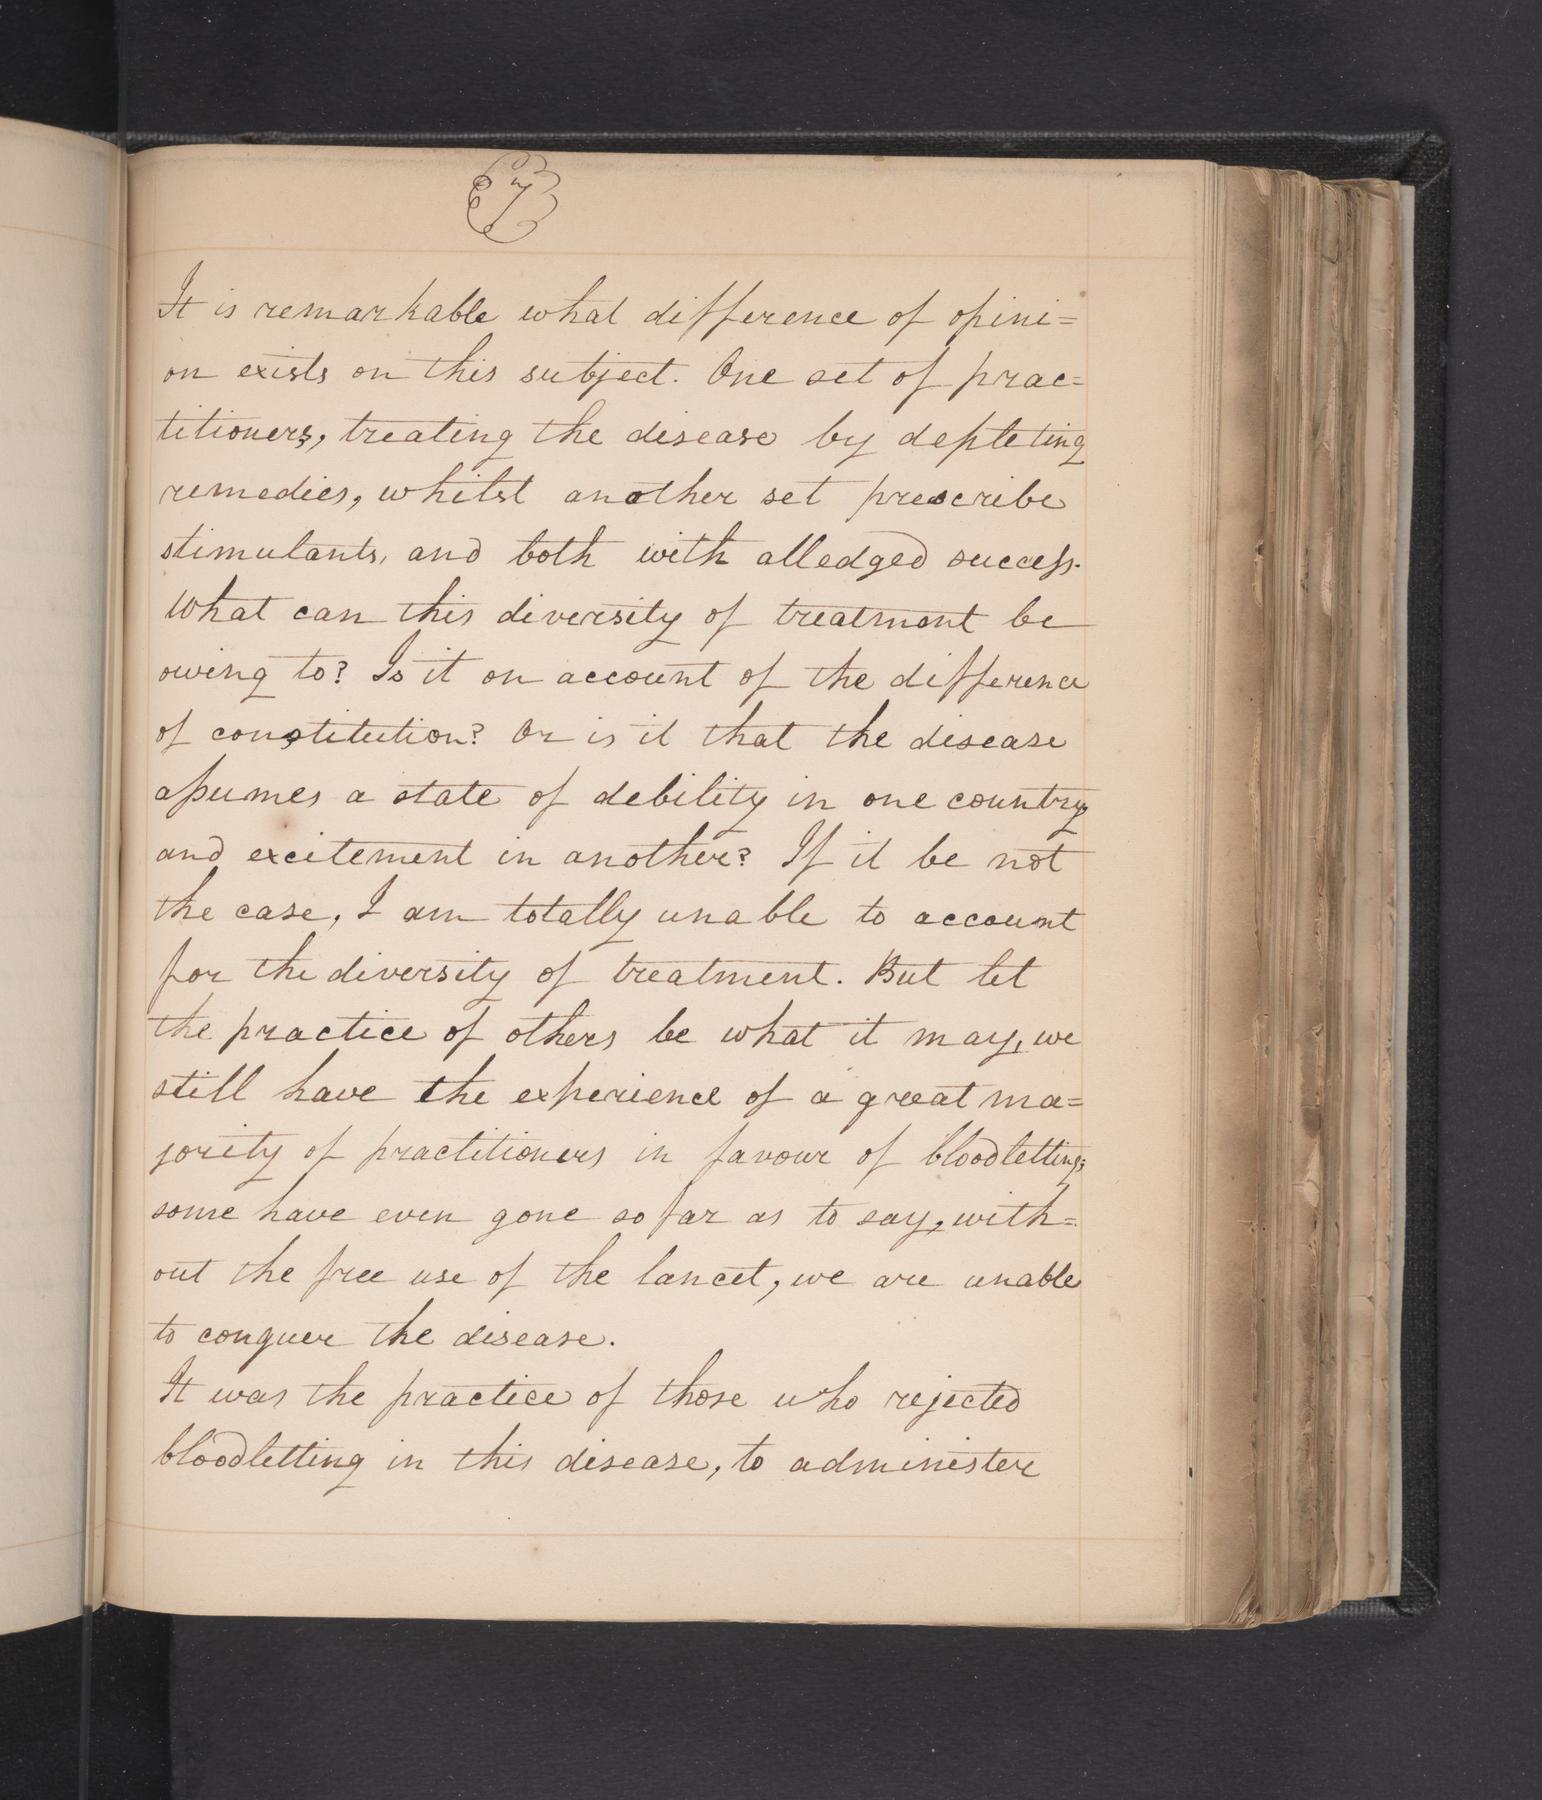 7
It is remarkable what difference of opini=
on exists on this subject. One set of prac=
titioners, treating the disease by depleting
remedies, whilst another set prescribe
stimulants, and both with alledged success.
What can this diversity of treatment be
owing to? Is it on account of the difference
of constitution? Or is it that the disease
assumes a state of debility in one country,
and excitement in another? If it be not
the case, I am totally unable to account
for the diversity of treatment. But let
the practice of others be what it may, we
still have the experience of a great ma=
jority of practitioners in favour of bloodletting;
some have even gone so far as to say, with=
out the free use of the lancet, we are unable
to conquer the disease.
It was the practice of those who rejected
bloodletting in this disease, to administer